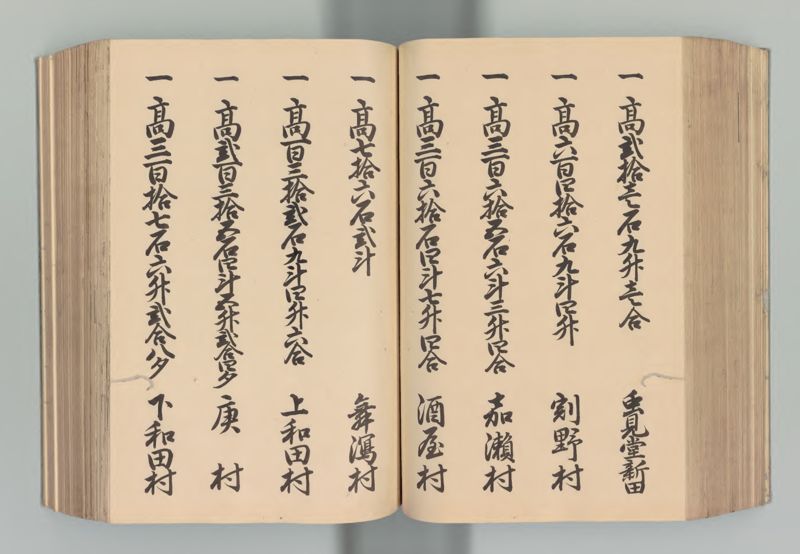 一 高弐拾壱石九升壱合 虫見堂新田
一 高六百四拾六石九斗四升 割野村
一 高三百六拾五石六斗三升四合 嘉瀬村
一 高三百六拾石四斗七升四合 酒屋村
一 高七拾六石弐斗 舞潟村
一 高百三拾弐石九斗四升六合 上和田村
一 高弐百三拾五石四斗五升弐合四夕 庚村
一 高三百拾七石六升弐合八夕 下和田村